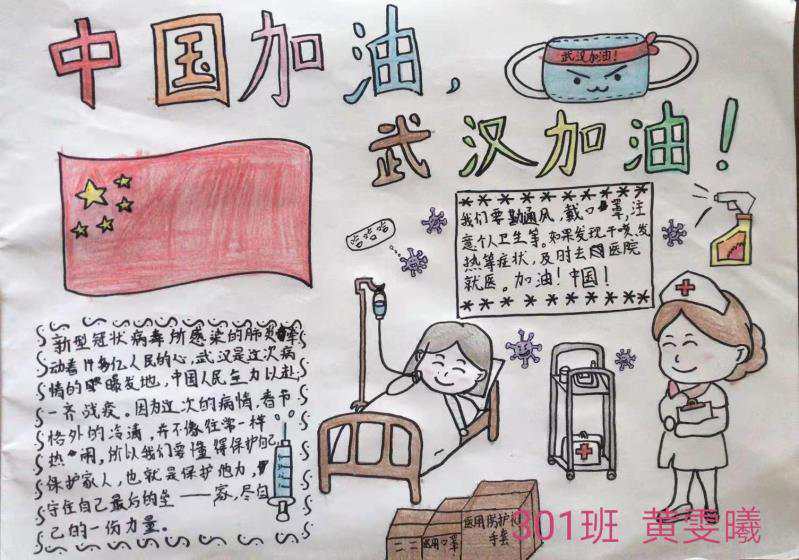 中国加油,
武汉加油!
武汉加油!
我们要勤通风,戴口罩,注
意个人卫生等。如果发现干咳、发
热等症状,及时去医院
就医。加油!中国!
新型冠状病毒所感染的肺炎牵
动着十多亿人民的心,武汉是这次病
情的曝发地,中国人民全力以赴,
一齐战疫。因为这次的病情,春节
格外的冷清,并不像往常一样
热闹,所以我们要懂得保护自己,
保护家人,也就是保护他力,
守住自己最后的垒——家,尽自
己的一份力量。
医用口罩
医用防护
手套
301班 黄雯曦